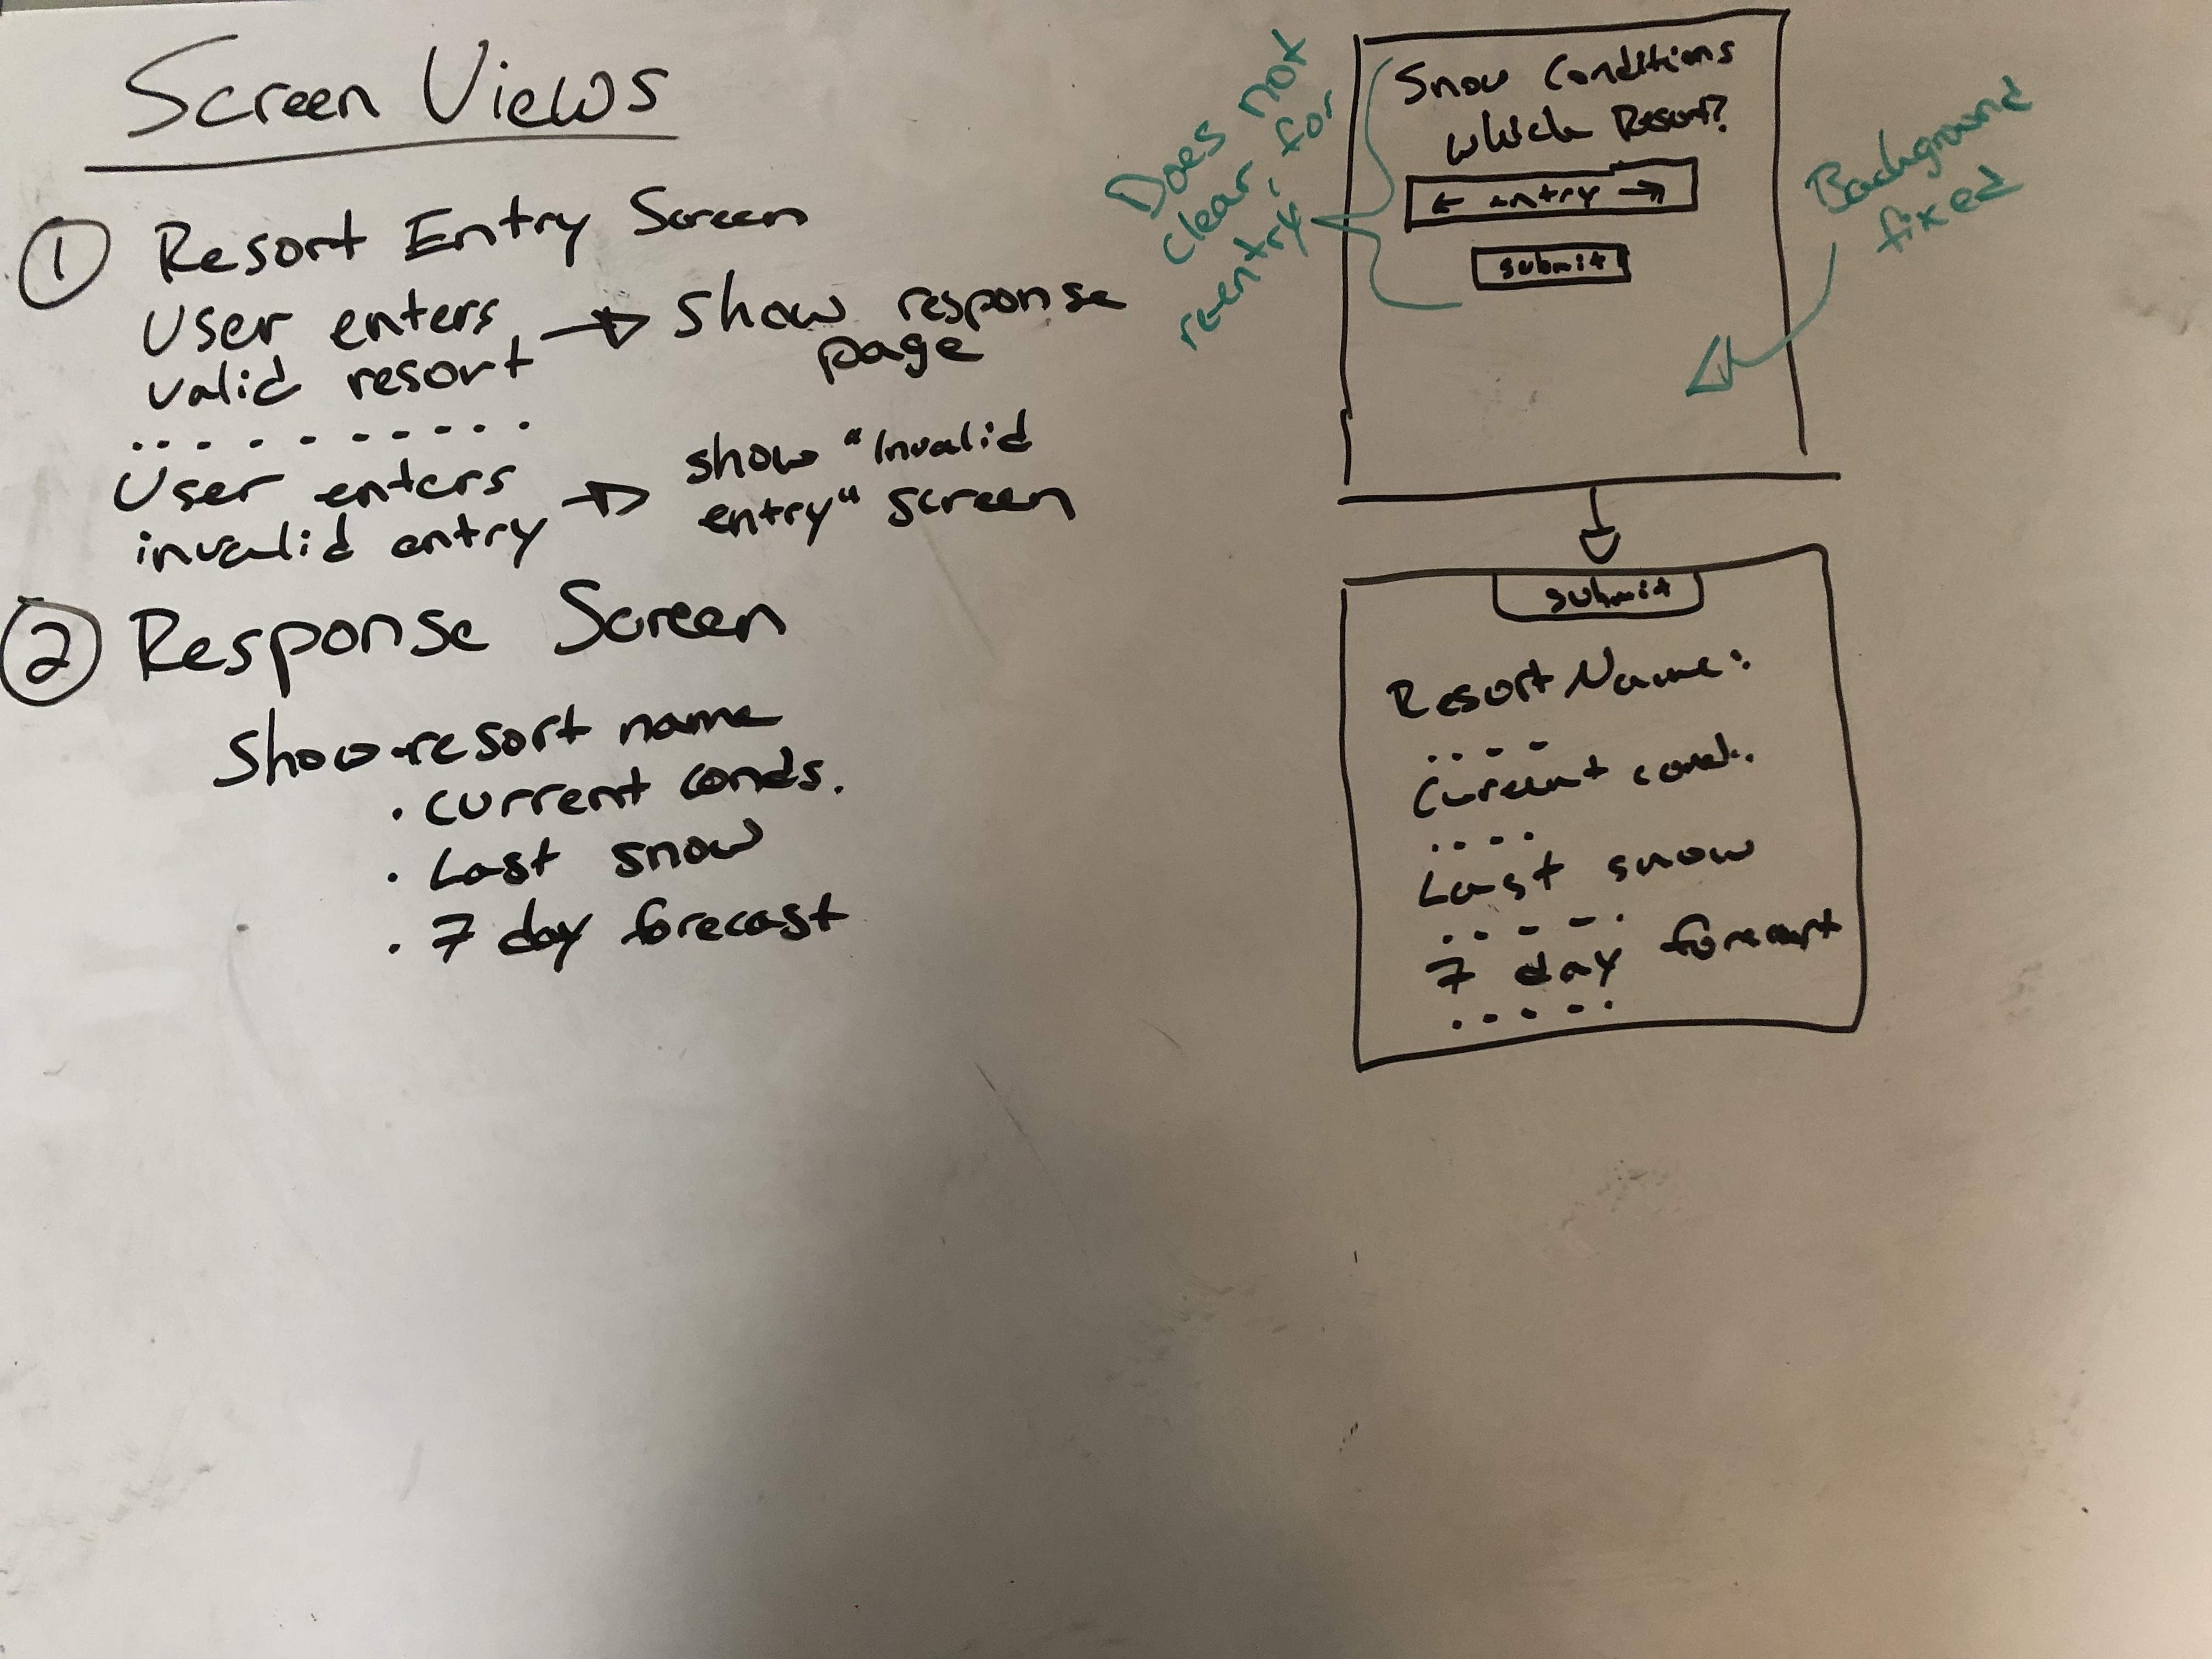 Screen Views
1 Resort Entry Screen
User enters → show response
valid resort page
User enters → show "Invalid
invalid entry entry" screen
2 Response Screen
Show resort name
. current conds.
. Last snow
. 7 day forecast
Does not
clear, for
reentry
Snow Conditions
which Resort?
← entry →
submit
Background
fixed
submit
Resort Name:
Current cond.
Last snow
7 day forecast